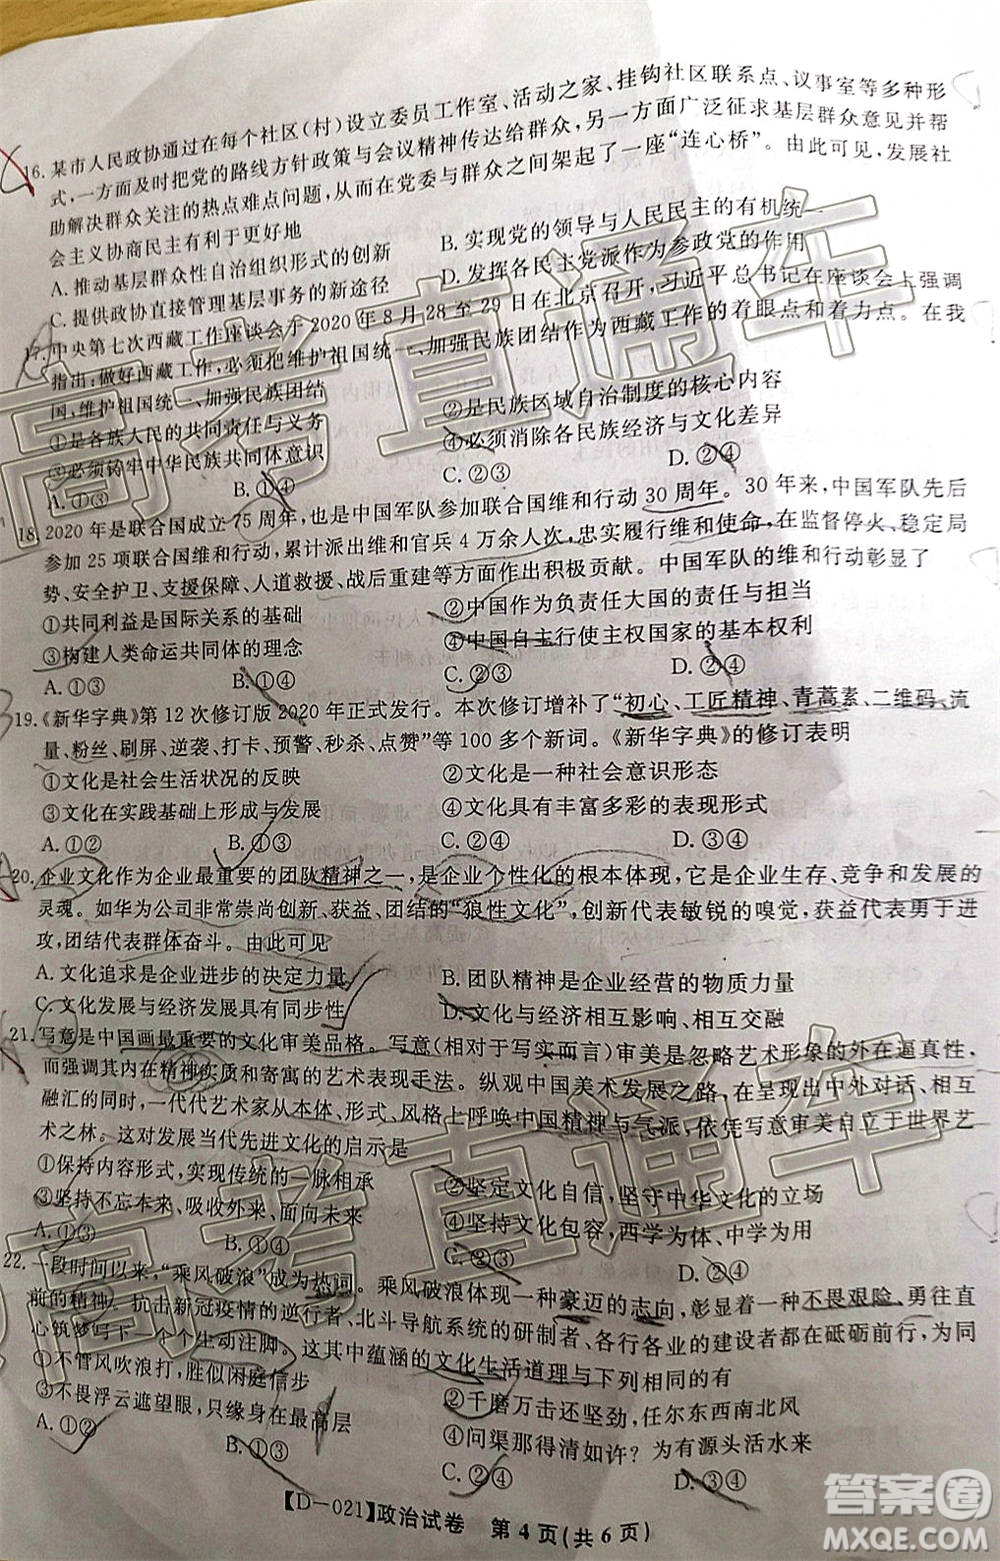 16. 某市人民政协通过在每个社区(村)设立委员工作室、活动之家、挂钩社区联系点、议事室等多种形
式,一方面及时把党的路线方针政策与会议精神传达给群众,另一方面广泛征求基层群众意见并帮
助解决群众关注的热点难点问题,从而在党委与群众之间架起了一座“连心桥”。由此可见,发展社
会主义协商民主有利于更好地
A. 推动基层群众性自治组织形式的创新
B. 实现党的领导与人民民主的有机统一
C. 提供政协直接管理基层事务的新途径
D. 发挥各民主党派参政党的作用
17. 中央第七次西藏工作座谈会于2020年8月28至29日在北京召开,习近平总书记在座谈会上强调
指出:做好西藏工作,必须把维护祖国统一、加强民族团结作为西藏工作的着眼点和着力点。在我
国,维护祖国统一、加强民族团结
①是各族人民的共同责任与义务
②是民族区域自治制度的核心内容
③必须铸牢中华民族共同体意识
④必须消除各民族经济与文化差异
A. ①③ B. ①④ C. ②③ D. ②④
18. 2020年是联合国成立75周年,也是中国军队参加联合国维和行动30周年。30年来,中国军队先后
参加25项联合国维和行动,累计派出维和官兵4万余人次,忠实履行维和使命,在监督停火、稳定局
势、安全护卫、支援保障、人道救援、战后重建等方面作出积极贡献。中国军队的维和行动彰显了
①共同利益是国际关系的基础
②中国作为负责任大国的责任与担当
③构建人类命运共同体的理念
④中国自主行使主权国家的基本权利
A. ①③ B. ①④ C. ②③ D. ②④
19. 《新华字典》第12次修订版2020年正式发行。本次修订增补了“初心、工匠精神、青蒿素、二维码、流
量、粉丝、刷屏、逆袭、打卡、预警、秒杀、点赞”等100多个新词。《新华字典》的修订表明
①文化是社会生活状况的反映
②文化是一种社会意识形态
③文化在实践基础上形成与发展
④文化具有丰富多彩的表现形式
A. ①② B. ①③ C. ②④ D. ③④
20. 企业文化作为企业最重要的团队精神之一,是企业个性化的根本体现,它是企业生存、竞争和发展的
灵魂。如华为公司非常崇尚创新、获益、团结的“狼性文化”,创新代表敏锐的嗅觉,获益代表勇于进
攻,团结代表群体奋斗。由此可见
A. 文化追求是企业进步的决定力量
B. 团队精神是企业经营的物质力量
C. 文化发展与经济发展具有同步性
D. 文化与经济相互影响、相互交融
21. 写意是中国画最重要的文化审美品格。写意(相对于写实而言)审美是忽略艺术形象的外在逼真性,
而强调其内在精神实质和寄寓的艺术表现手法。纵观中国美术发展之路,在呈现出中外对话、相互
融汇的同时,一代代艺术家从本体、形式、风格上呼唤中国精神与气派,依凭写意审美自立于世界艺
术之林。这对发展当代先进文化的启示是
①保持内容形式,实现传统的一脉相承
②坚定文化自信,坚守中华文化的立场
③坚持不忘本来、吸收外来、面向未来
④坚持文化包容,西学为体、中学为用
A. ①③ B. ①④ C. ②③ D. ②④
22. 一段时间以来,“乘风破浪”成为热词。乘风破浪体现一种豪迈的志向,彰显着一种不畏艰险、勇往直
前的精神。抗击新冠疫情的逆行者、北斗导航系统的研制者、各行各业的建设者都在砥砺前行,为同
心筑梦写下一个个生动注脚。这其中蕴涵的文化生活道理与下列相同的有
①不管风吹浪打,胜似闲庭信步
②千磨万击还坚劲,任尔东西南北风
③不畏浮云遮望眼,只缘身在最高层
④问渠那得清如许?为有源头活水来
A. ①② B. ①③ C. ②④ D. ③④
【D-021】政治试卷 第4页(共6页)
高考直通车
高考直通车
答案圈
MXQE.COM